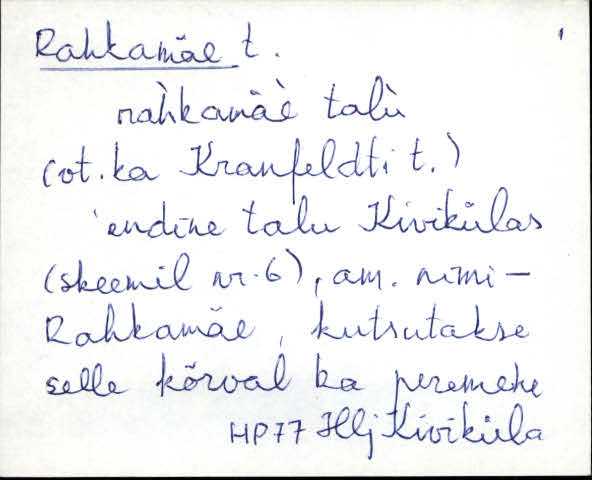 Rahkamäe t.
1
rahkamäè talù
(vt. ka Kranfeldti t.)
'endine talu Kivikülas
(skeemil nr. 6), am. nimi –
Rahkamäe, kutsutakse
selle kõrval ka peremehe
HP77 Hlj Kiviküla